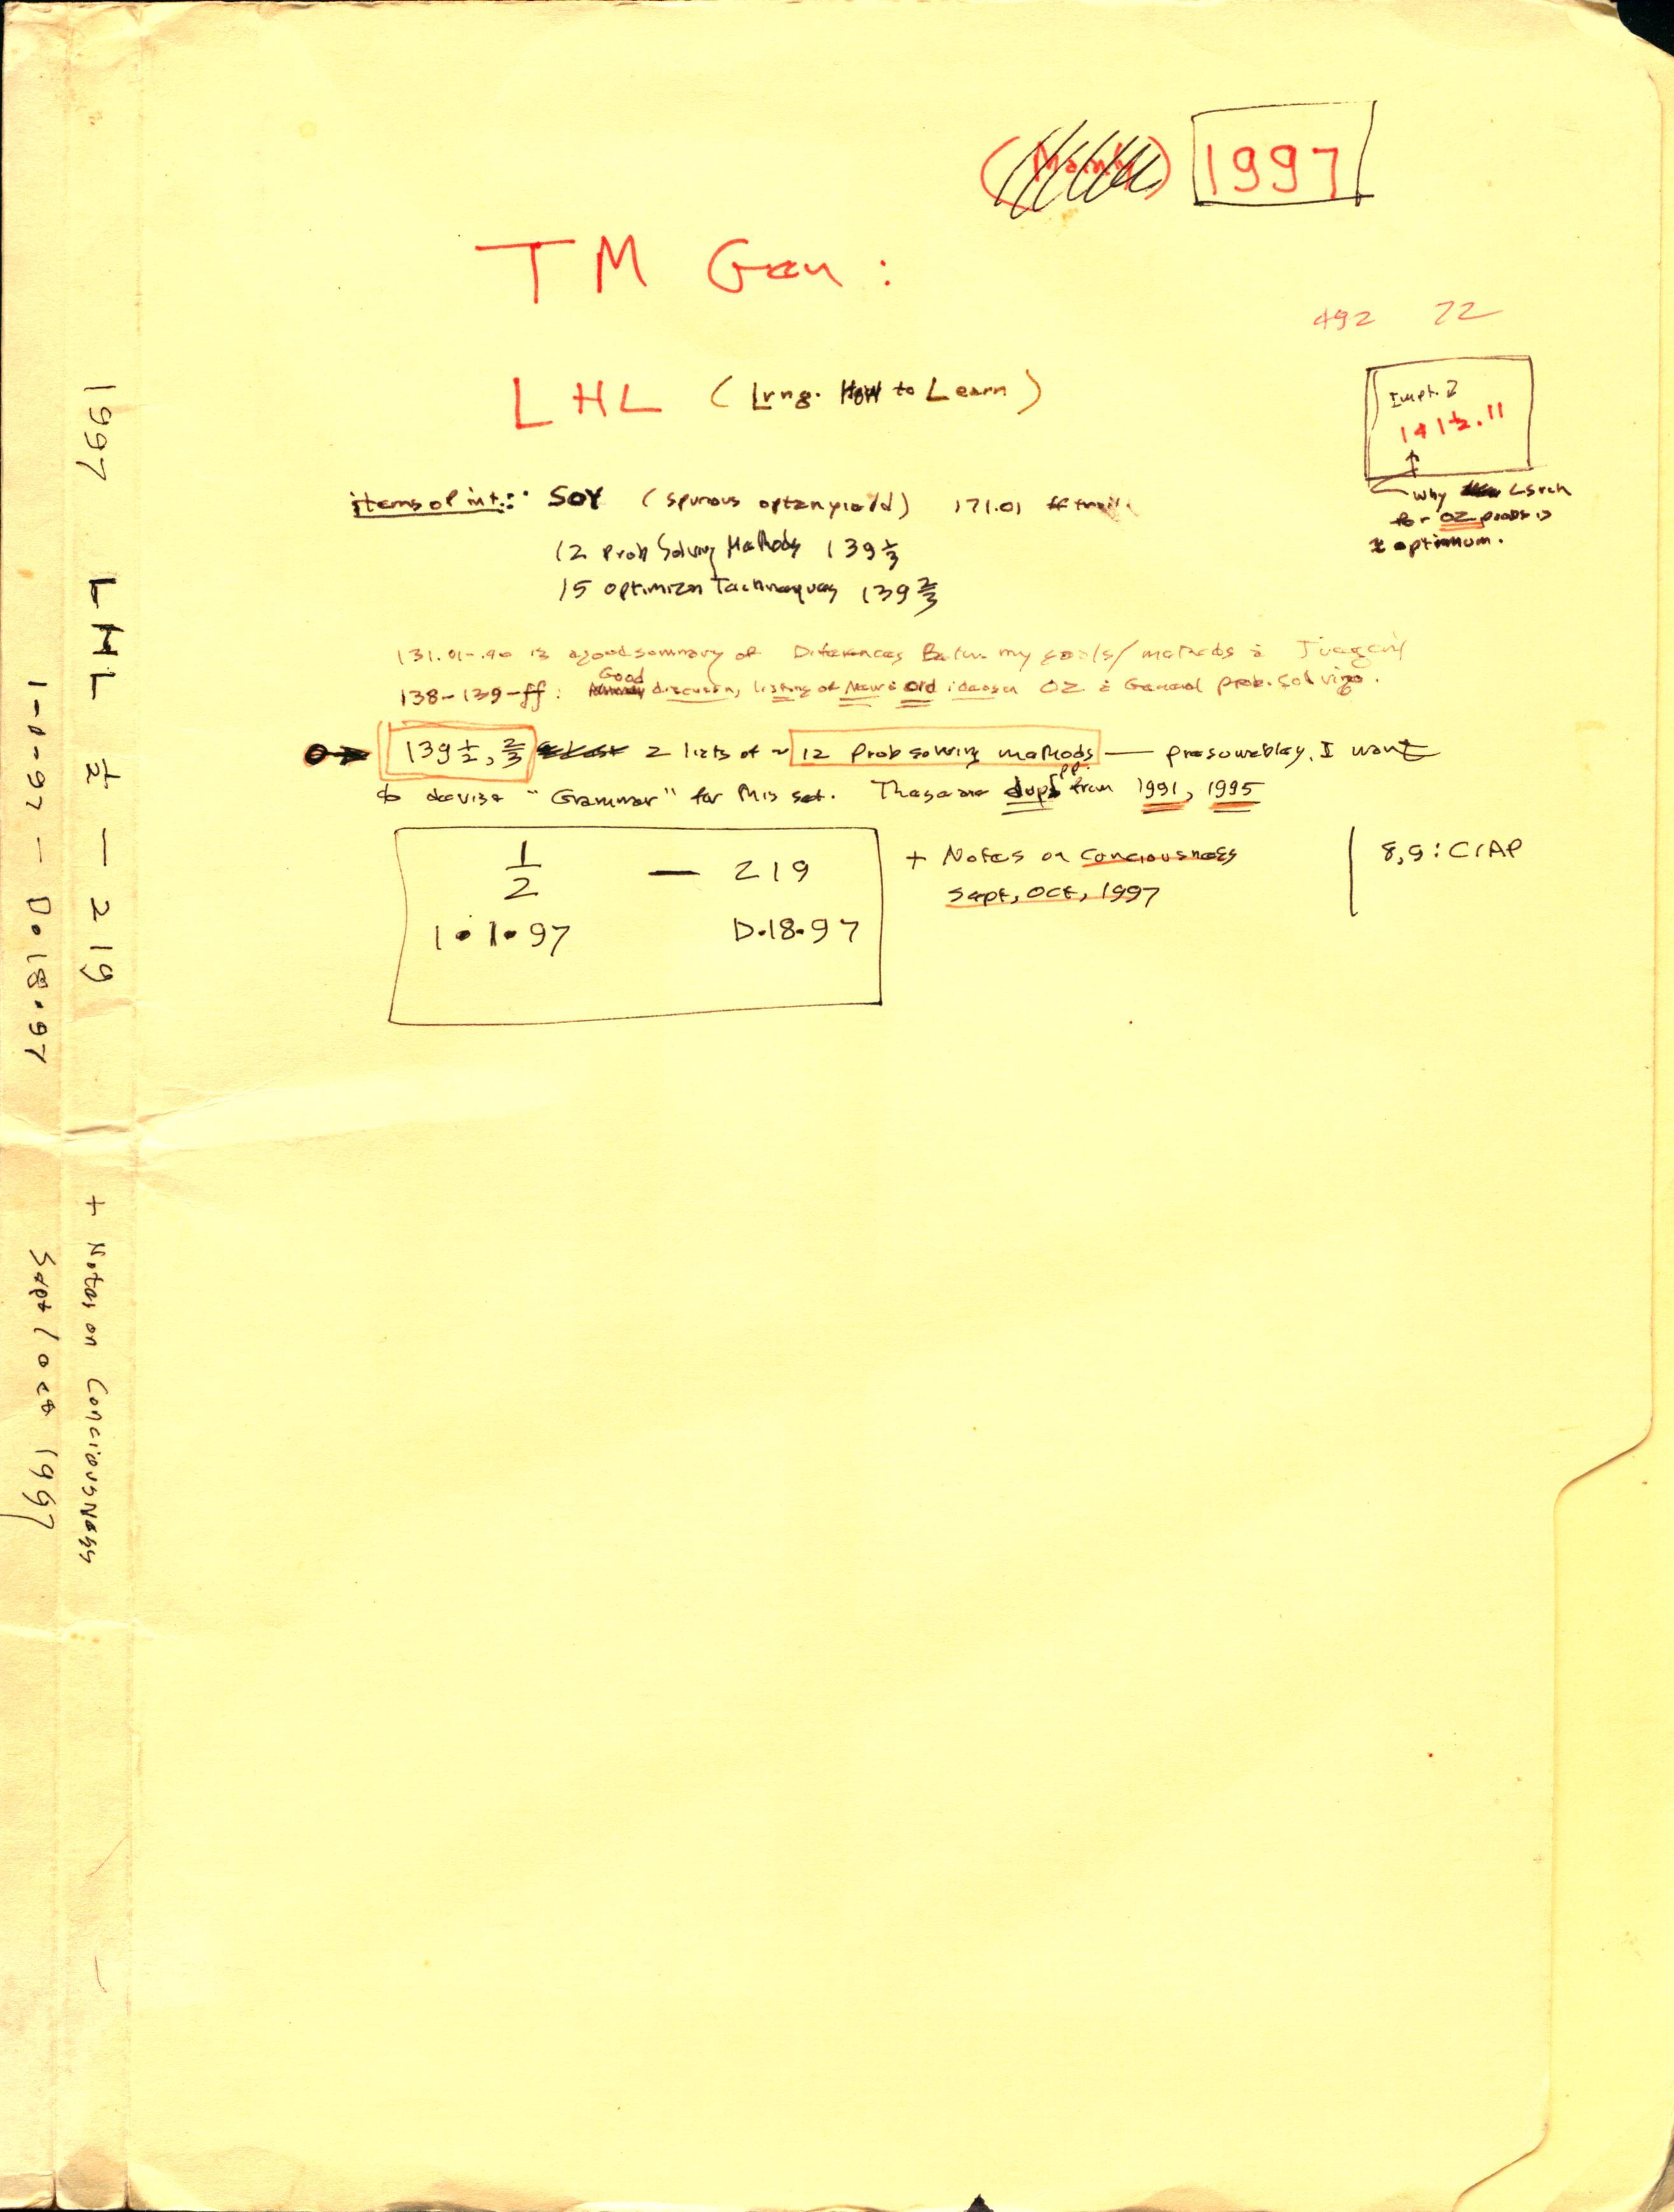 1997
TM Gen:
492 22
LHL (Lrng. How to Learn)
Impt. 2
141½.11
Why Lsrch
for OZ probs is
optimum.
items of int.: SOY (spurious optzn yield) 171.01 ff
12 Prob Solving Methods 139⅓
15 Optimizn Techneques 139⅔
131.01-.40 is a good summary of Diferences Betwn my goals/methods & Juergen's
138-139-ff: Good discussn, listing of New & Old ideas on OZ & General prob. Solving.
139½,⅔ 2 lists of ~ 12 Prob solving methods — presumebley, I want
to devise "Grammar" for this set. These are dups pp. from 1991, 1995
½ — 219
1.1.97 D.18.97
+ Notes on Conciousness
Sept, Oct, 1997
8,9: CIAP
1997 LHL ½ — 219 + Notes on Conciousness
1-1-97 — D.18.97 Sept/Oct 1997